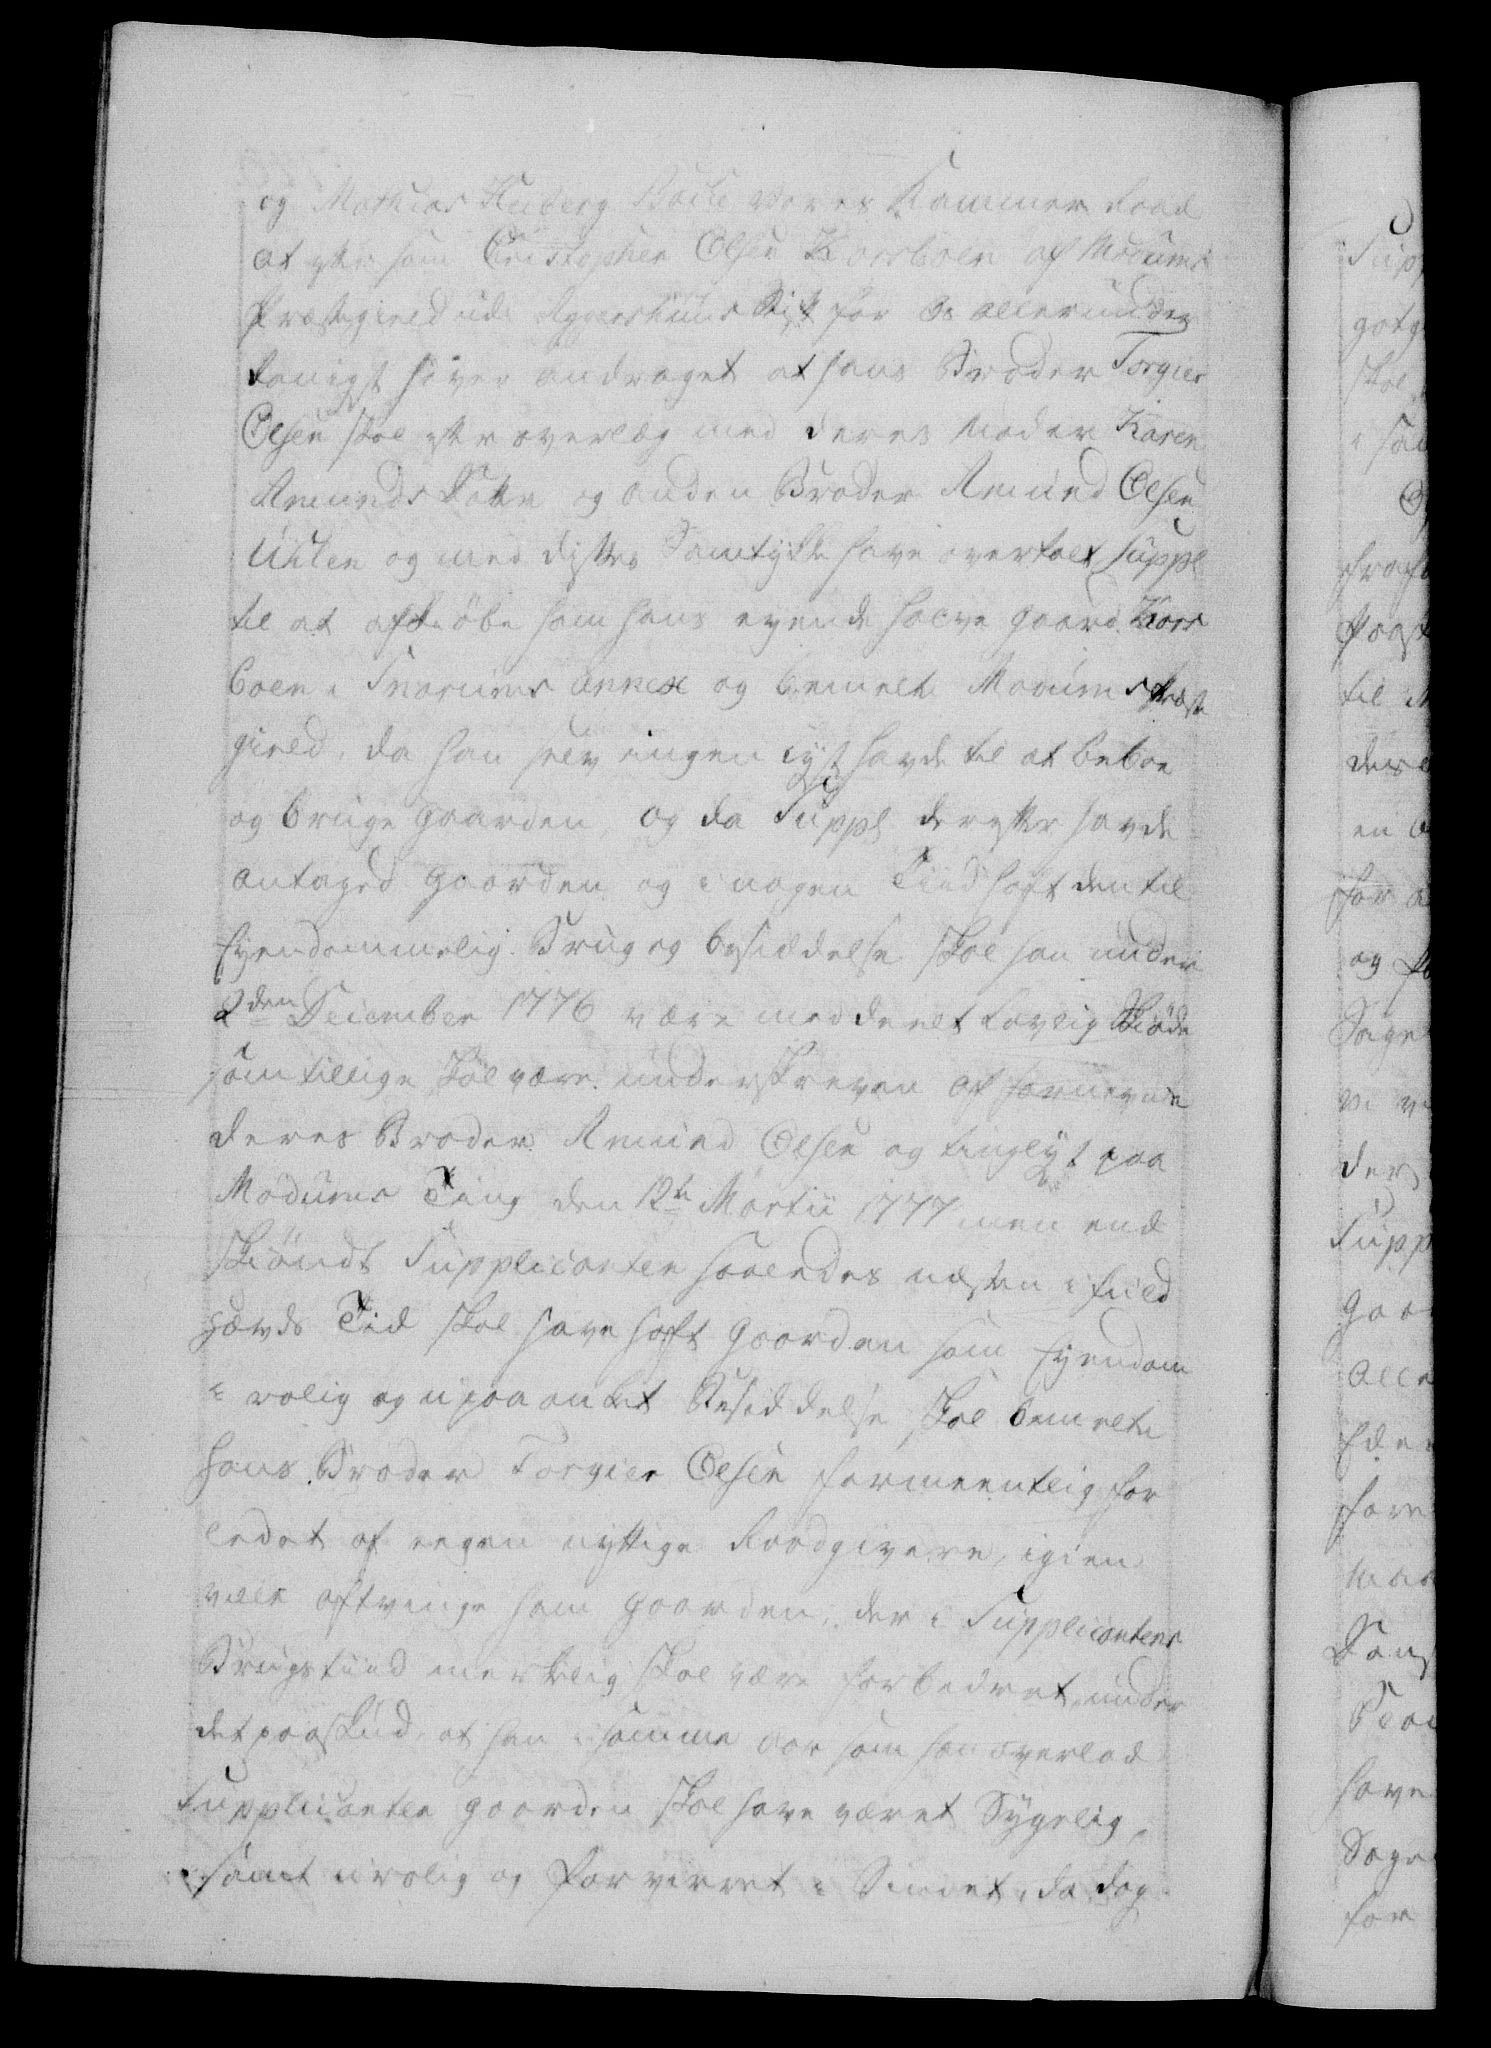 og Mathias Heiberg Bache vores Kammer Raad
at efter som Christopher Olsen Korsboen af Modums
Præstegield udi Aggershuus Stift for Os allerunder
danigst haver andraget at hans Broder Torgier
Olsen skal efter overlæg med deres Moder Karen
Amunds Datter og anden Broder Amund Olsen
Uhlen og med disses Samtykke have overtalt Suppl
til at afkiøbe ham hans eyende halve gaard Kors
boen i Snarums annex og bemelte Modums Præste
gield, da han selv ingen lyst havde til at beboe
og bruge gaarden, og da Suppl derefter havde
antaged gaarden og i nogen Tiid haft den til
Eyendommelig Brug og besiddelse skal han under
2den December 1776 være meddeelt lovlig Skiøde
som tillige skal være underskreven af fornevnte
deres Broder Amund Olsen og tinglyst paa
Modums Ting den 12te Martii 1777 men end
skiøndt Supplicanten saaledes næsten i fuld
hævds Tid skal have haft gaarden som Eyendom
i rolig og upaaanket Besiddelse skal bemelte
hans Broder Torgier Olsen formeentlig for
ledet af eegen nyttige Raadgivere, igien
ville aftvinge ham gaarden, der i Supplicantens
Brugstiid merkelig skal være forbedret, under
det paaskud at han i samme aar som han overlod
Supplicanten gaarden skal have været Sygelig,
samt urolig og forvirret i Sindet, da dog